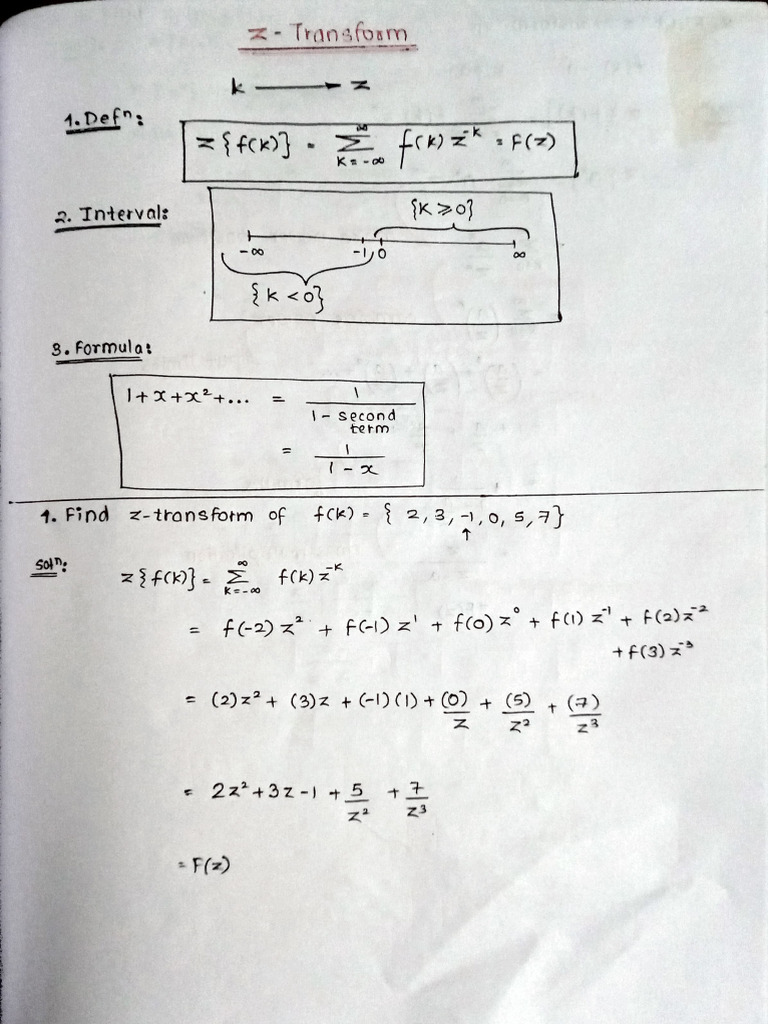 z - Transform
k ⟶ z
1. Defⁿ:
z{f(k)} = ∑_{k=-∞}^{∞} f(k) z^{-k} = F(z)
2. Interval:
{k ≥ 0}
-∞ -1 0 ∞
{k < 0}
3. Formula:
1 + x + x² + ... = 1 / (1 - second term)
= 1 / (1 - x)
1. Find z-transform of f(k) = { 2, 3, -1, 0, 5, 7}
↑
Solⁿ:
z{f(k)} = ∑_{k=-∞}^{∞} f(k) z^{-k}
= f(-2) z² + f(-1) z¹ + f(0) z⁰ + f(1) z⁻¹ + f(2) z⁻²
+ f(3) z⁻³
= (2)z² + (3)z + (-1)(1) + (0)/z + (5)/z² + (7)/z³
= 2z² + 3z - 1 + 5/z² + 7/z³
= F(z)